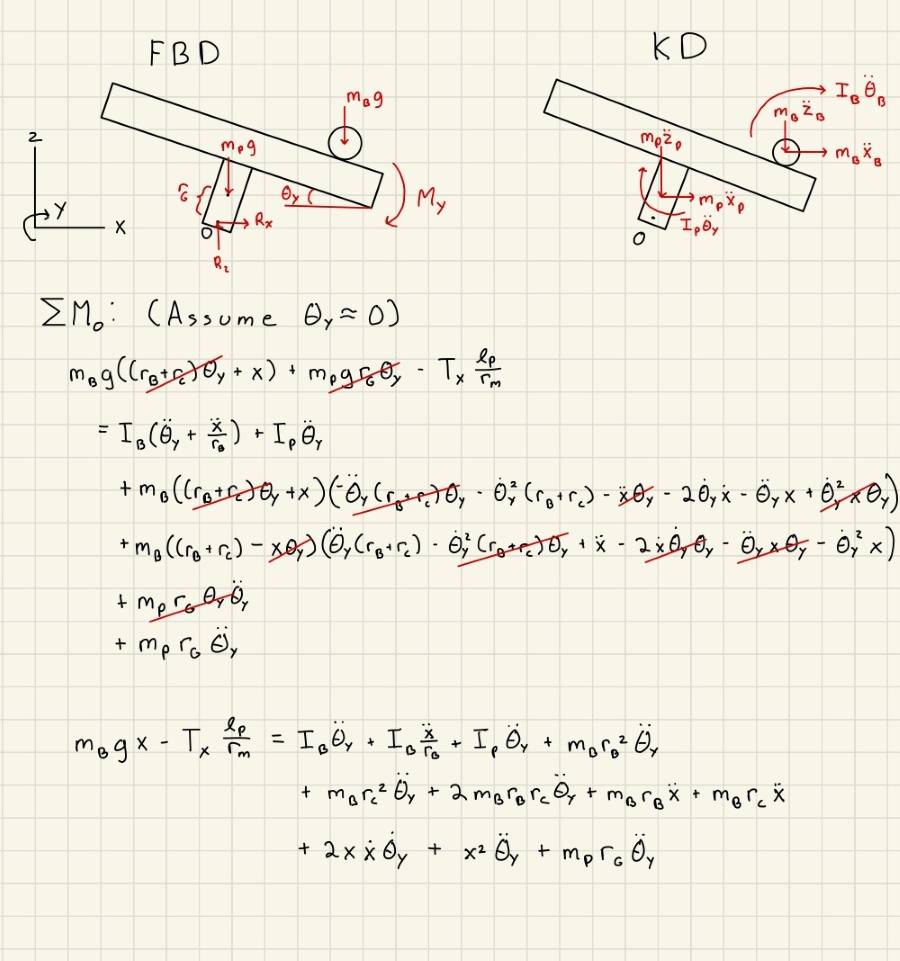 FBD
KD
m_B g
I_B θ̈_B
m_B z̈_B
z
m_P g
m_P z̈_P
m_B ẍ_B
r_G
θ_y
M_y
Y
R_x
m_P ẍ_P
x
O
I_P θ̈_y
R_z
O
ΣM_o: (Assume θ_y ≈ 0)
m_B g((r_B+r_c)θ_y + x) + m_P g r_G θ_y - T_x ℓ_P/r_m
= I_B(θ̈_y + ẍ/r_B) + I_P θ̈_y
+ m_B((r_B+r_c)θ_y + x)(-θ̈_y(r_B+r_c)θ_y - θ̇_y²(r_B+r_c) - ẍθ_y - 2θ̇_y ẋ - θ̈_y x + θ̇_y² x θ_y)
+ m_B((r_B+r_c) - xθ_y)(θ̈_y(r_B+r_c) - θ̇_y²(r_B+r_c)θ_y + ẍ - 2ẋθ̇_yθ_y - θ̈_y xθ_y - θ̇_y² x)
+ m_P r_G θ_y θ̈_y
+ m_P r_G θ̈_y
m_B g x - T_x ℓ_P/r_m = I_B θ̈_y + I_B ẍ/r_B + I_P θ̈_y + m_B r_B² θ̈_y
+ m_B r_c² θ̈_y + 2 m_B r_B r_c θ̈_y + m_B r_B ẍ + m_B r_c ẍ
+ 2x ẋ θ̇_y + x² θ̈_y + m_P r_G θ̈_y